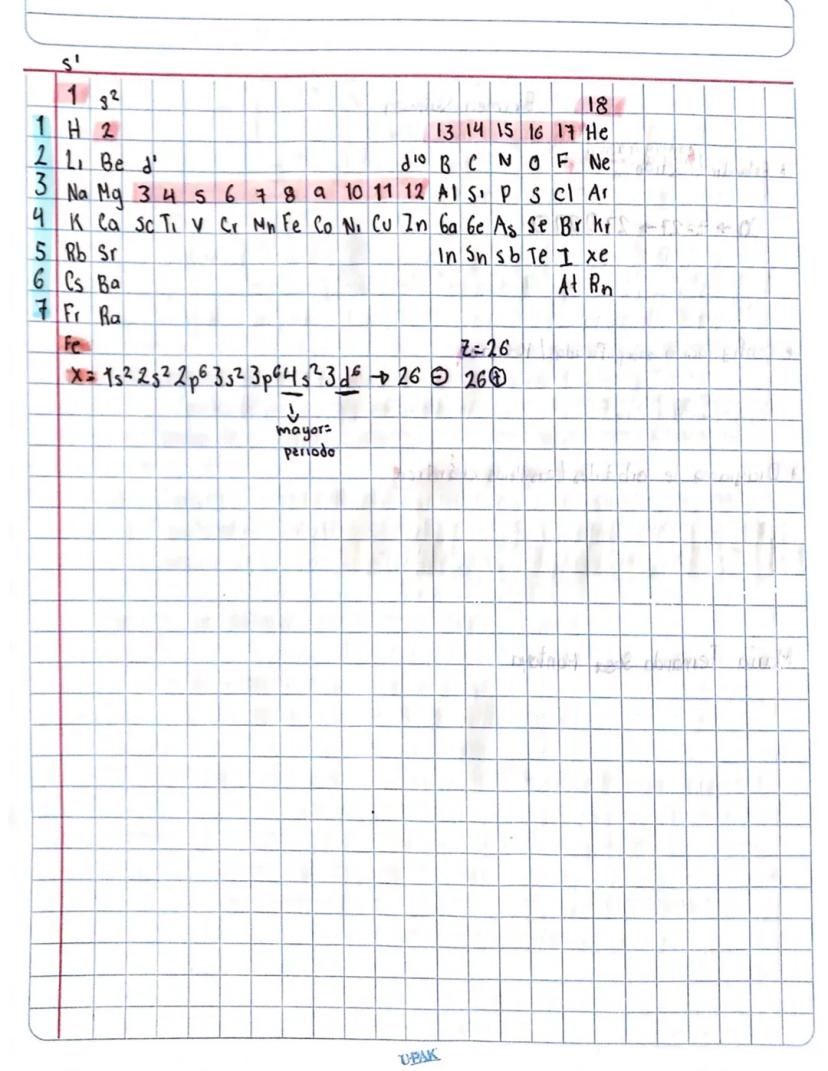 s¹
1 s² 18
1 H 2 13 14 15 16 17 He
2 Li Be d¹ d¹⁰ B C N O F Ne
3 Na Mg 3 4 5 6 7 8 9 10 11 12 Al Si P S Cl Ar
4 K Ca Sc Ti V Cr Mn Fe Co Ni Cu Zn Ga Ge As Se Br Kr
5 Rb Sr In Sn Sb Te I Xe
6 Cs Ba At Rn
7 Fr Ra
Fe Z=26
X= 1s² 2s² 2p⁶ 3s² 3p⁶ 4s² 3d⁶ → 26 ⊖ 26 ⊕
↓
mayor=
periodo
UPAK